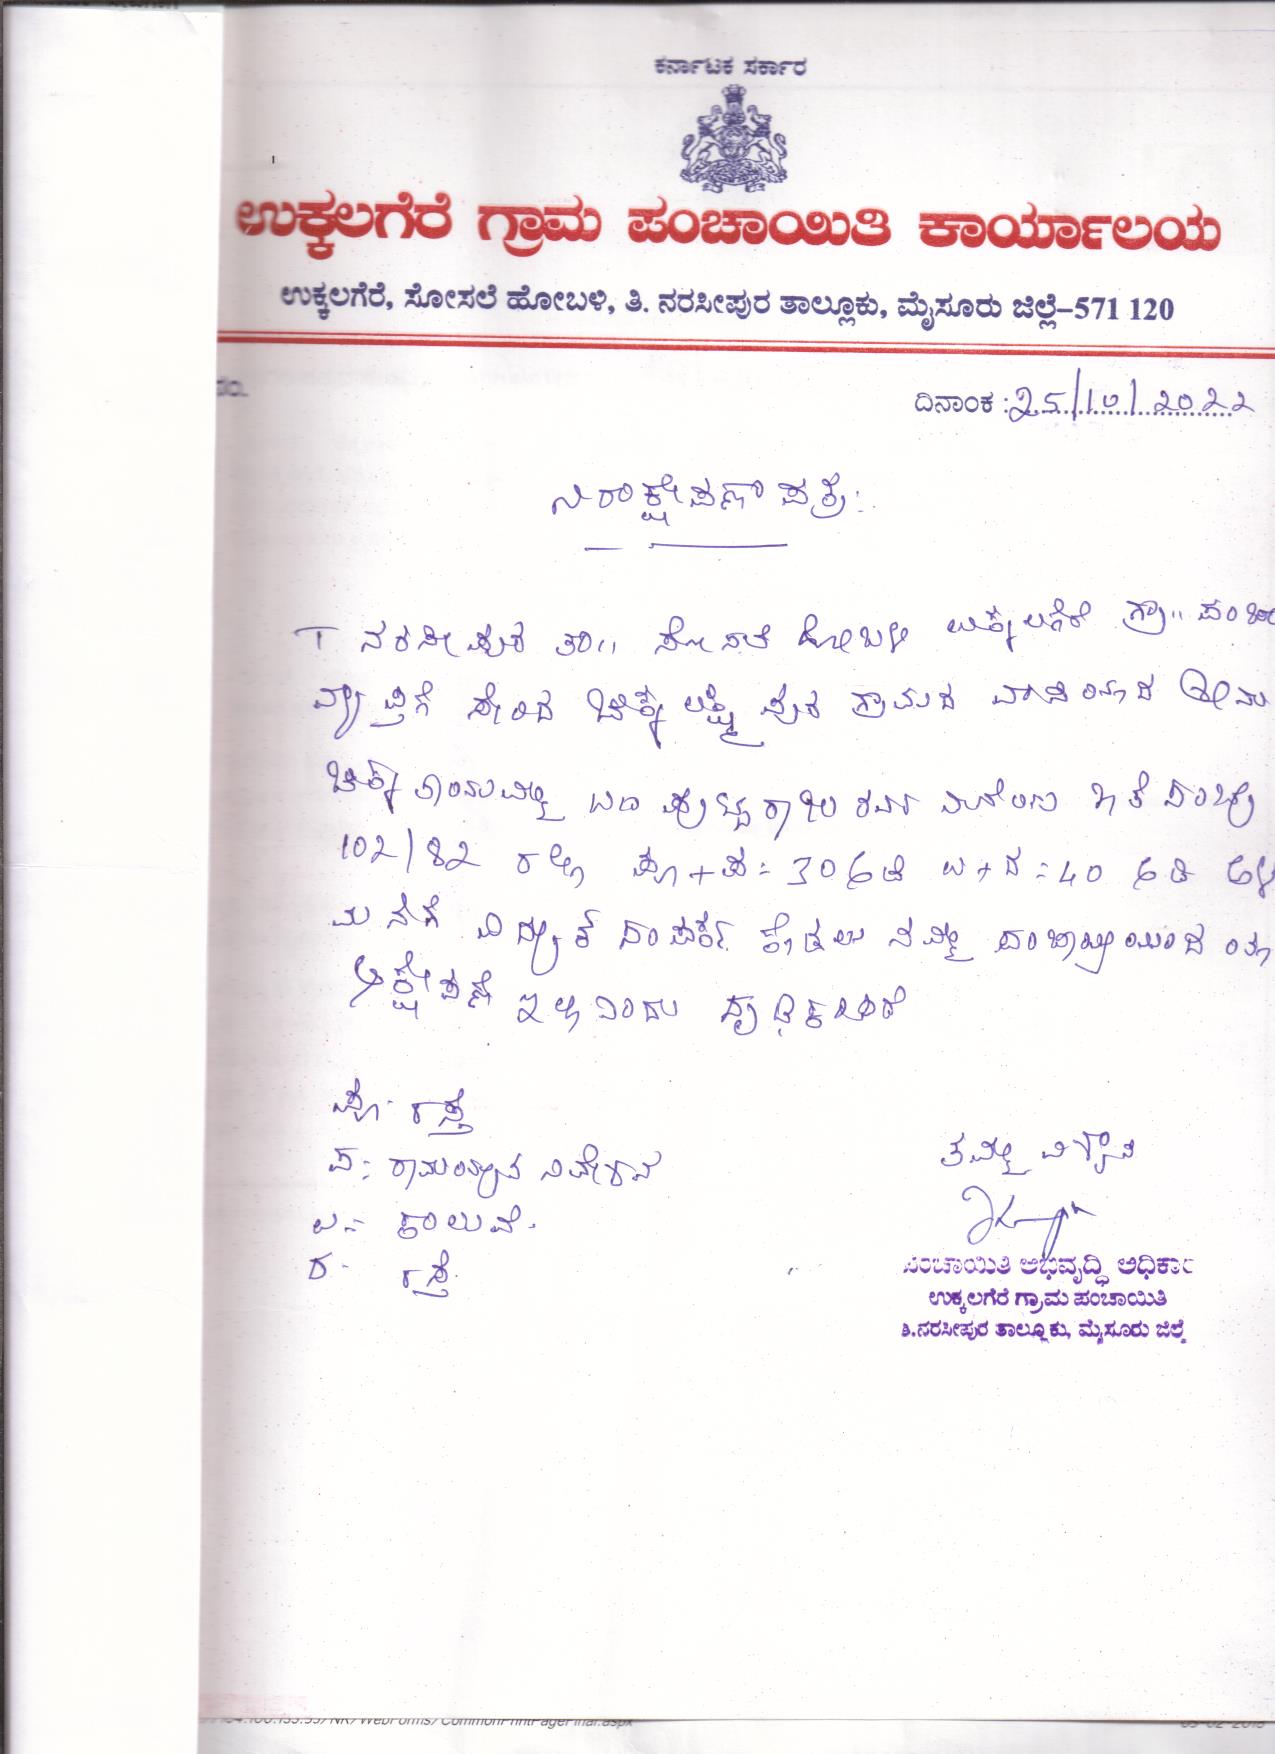 ಕರ್ನಾಟಕ ಸರ್ಕಾರ
ಉಕ್ಕಲಗೆರೆ ಗ್ರಾಮ ಪಂಚಾಯಿತಿ ಕಾರ್ಯಾಲಯ
ಉಕ್ಕಲಗೆರೆ, ಸೋಸಲೆ ಹೋಬಳಿ, ತಿ. ನರಸೀಪುರ ತಾಲ್ಲೂಕು, ಮೈಸೂರು ಜಿಲ್ಲೆ–571 120
ದಿನಾಂಕ : 25/10/2022
ನಿರಾಕ್ಷೇಪಣಾ ಪತ್ರ:
T ನರಸೀಪುರ ತಾ,, ಸೋಸಲೆ ಹೋಬಳಿ ಉಕ್ಕಲಗೆರೆ ಗ್ರಾ,,
ವ್ಯಾಪ್ತಿಗೆ ಸೇರಿದ ಚಿಕ್ಕಲಕ್ಷ್ಮೀಪುರ ಗ್ರಾಮದ ವಾಸಿಯಾದ
ಬಿನ್ ಪುಟ್ಟ
102/82 ರಲ್ಲಿ ಪೂ+ಪ=30 ಅಡಿ ಉ+ದ=40 ಅಡಿ ಅಳ
ಮನೆಗೆ ವಿದ್ಯುತ್ ಸಂಪರ್ಕ ಕೊಡಲು ನಮ್ಮ
ಆಕ್ಷೇಪಣೆ ಇಲ್ಲ ಎಂದು ದೃಢೀಕರಿಸಿದೆ
ಪೂ- ರಸ್ತೆ
ಪ= ರಾಮಯ್ಯನ ನಿವೇಶನ
ಉ=- ಕಾಲುವೆ.
ದ- ರಸ್ತೆ.
ತಮ್ಮ ವಿಶ್ವಾಸಿ
ಪಂಚಾಯಿತಿ ಅಭಿವೃದ್ಧಿ ಅಧಿಕಾರಿ
ಉಕ್ಕಲಗೆರೆ ಗ್ರಾಮ ಪಂಚಾಯಿತಿ
ತಿ.ನರಸೀಪುರ ತಾಲ್ಲೂಕು, ಮೈಸೂರು ಜಿಲ್ಲೆ